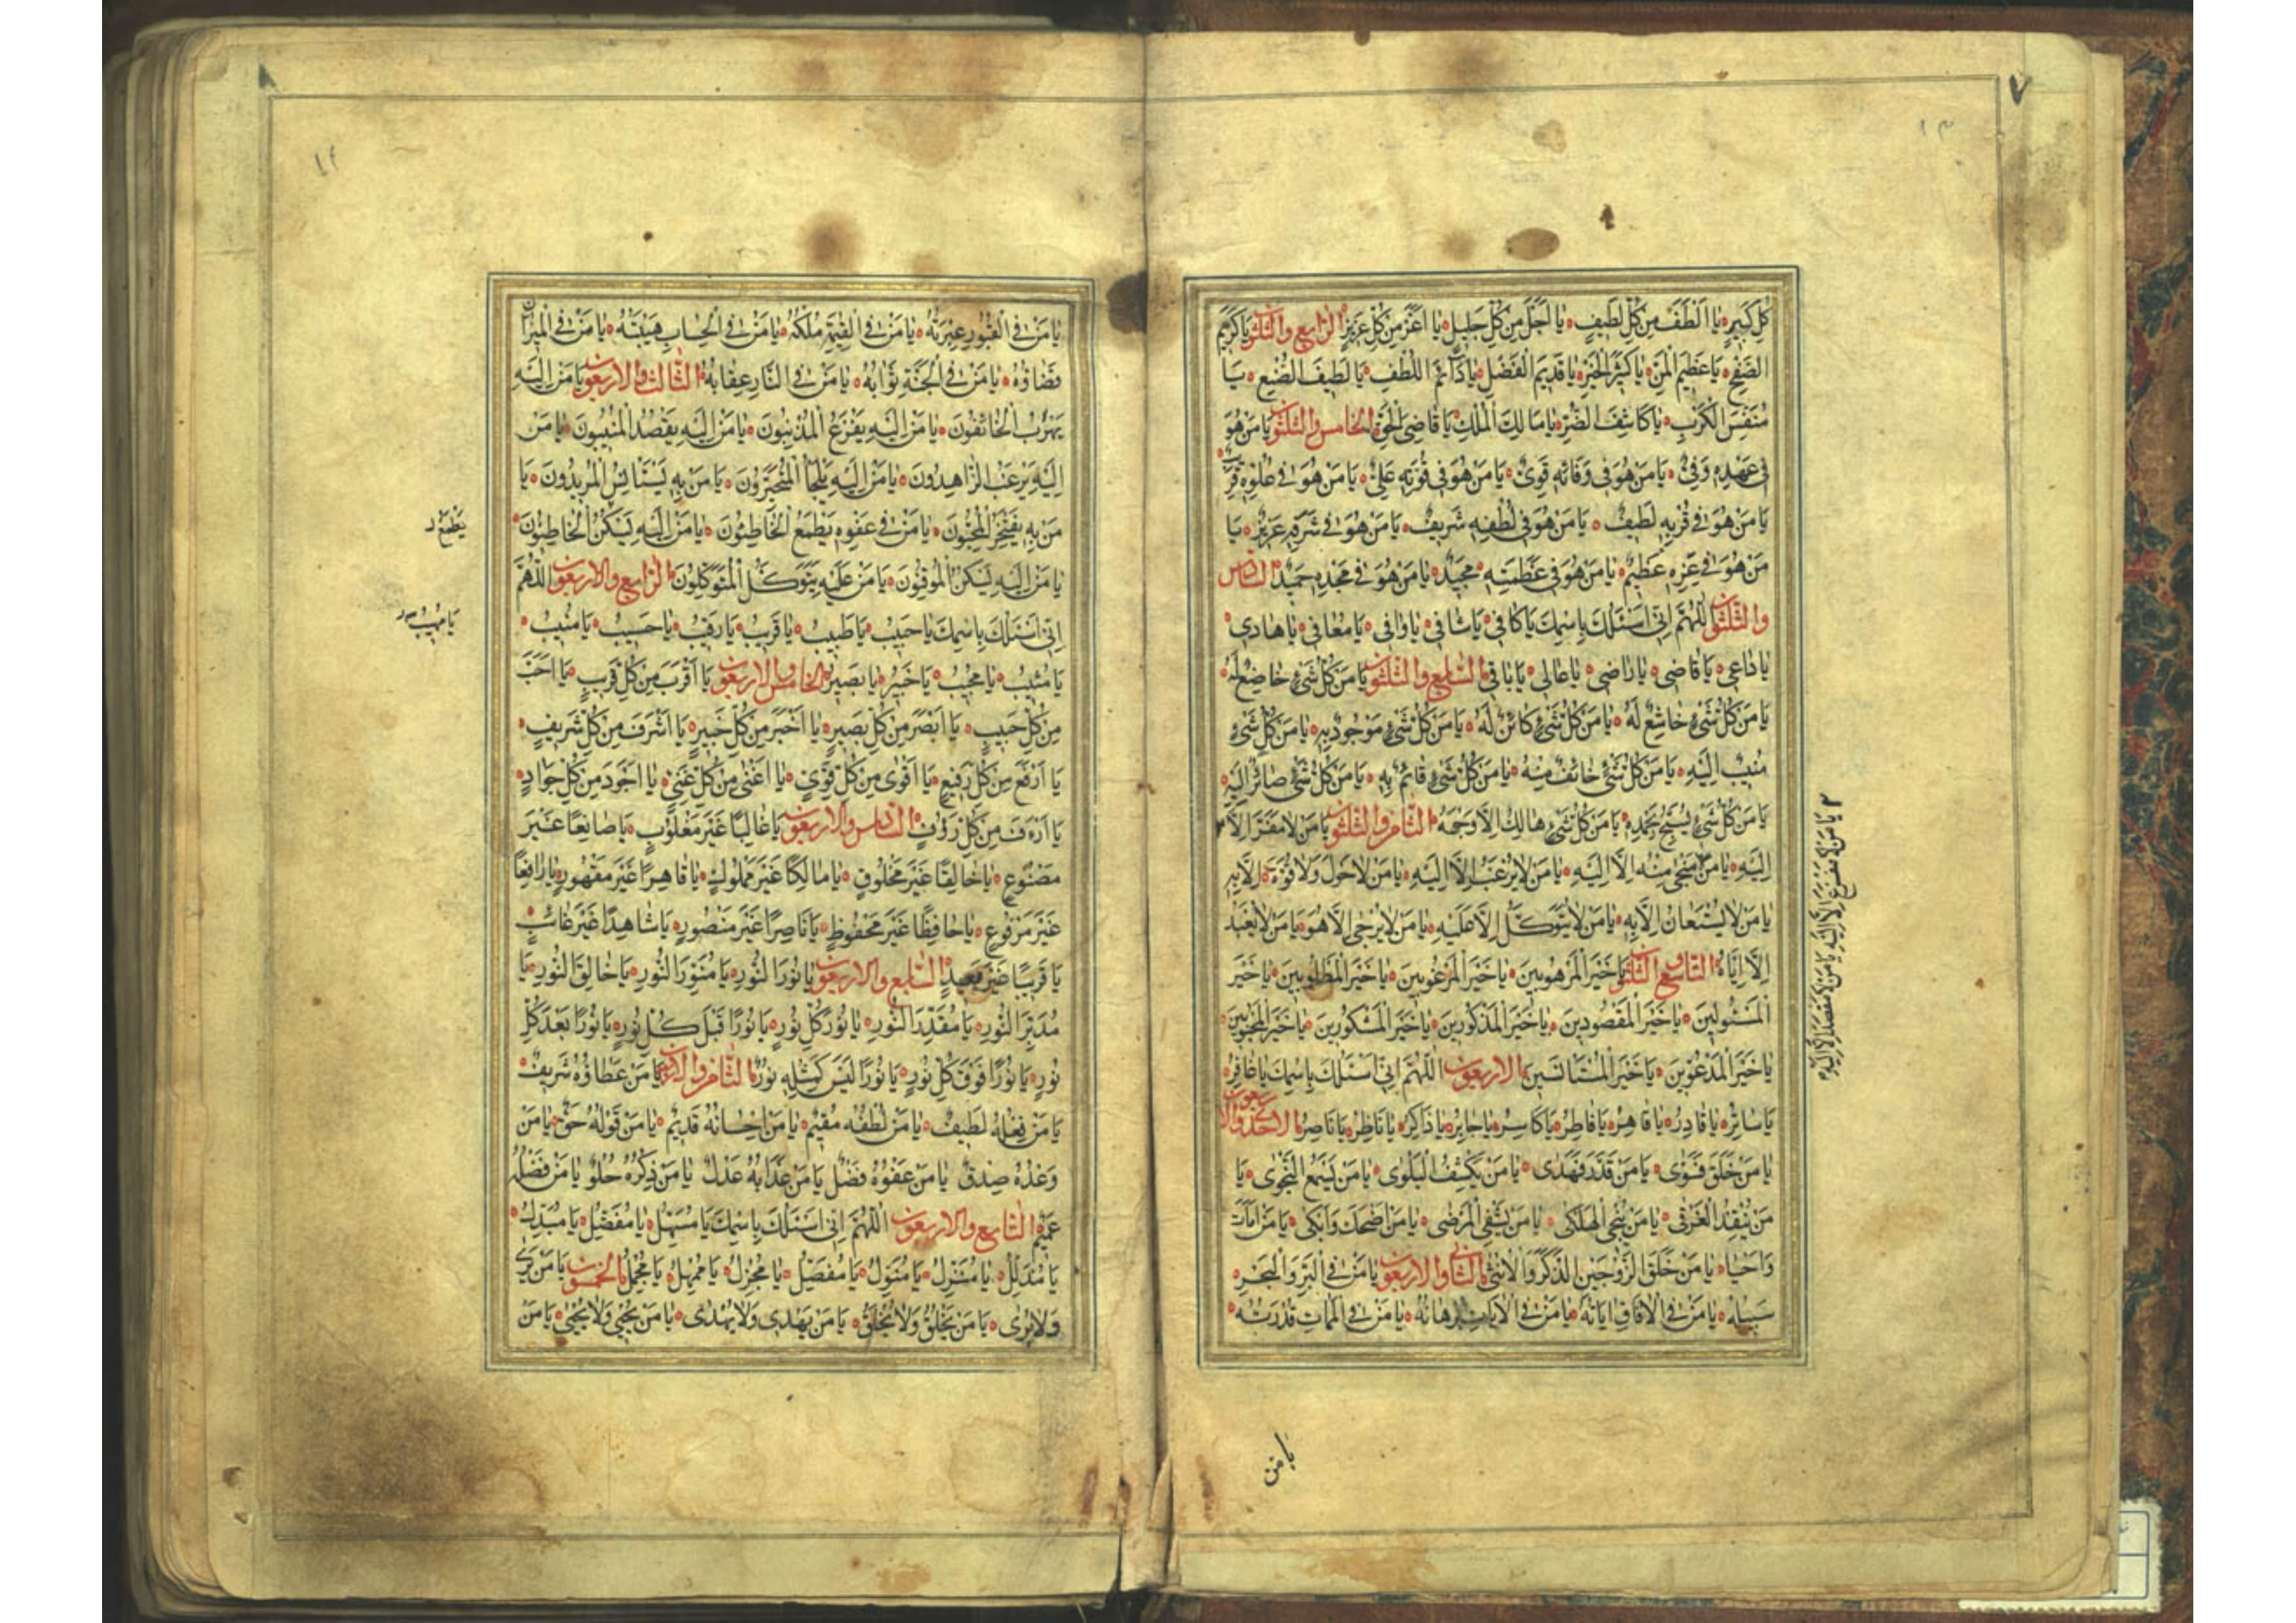 ٧
١٣
كُلِّ كَبِيرٍ يا اَلْطَفَ مِنْ كُلِّ لَطيفٍ يا اَجَلَّ مِنْ كُلِّ جَليلٍ يا اَعَزَّ مِنْ كُلِّ عَزيزٍ الرّابع والثلثون يا كَريمَ
الصَّفْحِ يا عَظيمَ الْمَنِّ يا كَثيرَ الْخَيْرِ يا قَديمَ الْفَضْلِ يا دآئِمَ اللُّطْفِ يا لَطيفَ الصُّنْعِ يا
مُنَفِّسَ الْكَرْبِ يا كاشِفَ الضُّرِّ يا مالِكَ الْمُلْكِ يا قاضِيَ الْحَقِّ الخامس والثلثون يا مَنْ هُوَ
في عَهْدِهِ وَفِيٌّ يا مَنْ هُوَ في وَفائِهِ قَوِيٌّ يا مَنْ هُوَ في قُوَّتِهِ عَلِيٌّ يا مَنْ هُوَ في عُلُوِّهِ قَريبٌ
يا مَنْ هُوَ في قُرْبِهِ لَطيفٌ يا مَنْ هُوَ في لُطْفِهِ شَريفٌ يا مَنْ هُوَ في شَرَفِهِ عَزيزٌ يا
مَنْ هُوَ في عِزِّهِ عَظيمٌ يا مَنْ هُوَ في عَظَمَتِهِ مَجيدٌ يا مَنْ هُوَ في مَجْدِهِ حَميدٌ السّادس
والثلثون اَللّهُمَّ اِنّي اَسْئَلُكَ بِاسْمِكَ يا كافي يا شافي يا وافي يا مُعافي يا هادي
يا داعي يا قاضي يا راضي يا عالي يا باقي السّابع والثلثون يا مَنْ كُلُّ شَيْءٍ خاضِعٌ لَهُ
يا مَنْ كُلُّ شَيْءٍ خاشِعٌ لَهُ يا مَنْ كُلُّ شَيْءٍ كائِنٌ لَهُ يا مَنْ كُلُّ شَيْءٍ مَوْجُودٌ بِهِ يا مَنْ كُلُّ شَيْءٍ
مُنيبٌ اِلَيْهِ يا مَنْ كُلُّ شَيْءٍ خائِفٌ مِنْهُ يا مَنْ كُلُّ شَيْءٍ قائِمٌ بِهِ يا مَنْ كُلُّ شَيْءٍ صائِرٌ اِلَيْهِ
يا مَنْ كُلُّ شَيْءٍ يُسَبِّحُ بِحَمْدِهِ يا مَنْ كُلُّ شَيْءٍ هالِكٌ اِلاّ وَجْهَهُ الثّامن والثلثون يا مَنْ لا مَفَرَّ اِلاّ
اِلَيْهِ يا مَنْ لا مَنْجى مِنْهُ اِلاّ اِلَيْهِ يا مَنْ لا يُرْغَبُ اِلاّ اِلَيْهِ يا مَنْ لا حَوْلَ وَلا قُوَّةَ اِلاّ بِهِ
يا مَنْ لا يُسْتَعانُ اِلاّ بِهِ يا مَنْ لا يُتَوَكَّلُ اِلاّ عَلَيْهِ يا مَنْ لا يُرْجى اِلاّ هُوَ يا مَنْ لا يُعْبَدُ
اِلاّ اِيّاهُ التّاسع والثلثون يا خَيْرَ الْمَرْهُوبينَ يا خَيْرَ الْمَرْغُوبينَ يا خَيْرَ الْمَطْلُوبينَ يا خَيْرَ
الْمَسْئُولينَ يا خَيْرَ الْمَقْصُودينَ يا خَيْرَ الْمَذْكُورينَ يا خَيْرَ الْمَشْكُورينَ يا خَيْرَ الْمَحْبُوبينَ
يا خَيْرَ الْمَدْعُوّينَ يا خَيْرَ الْمُسْتَأنَسينَ الاربعون اَللّهُمَّ اِنّي اَسْئَلُكَ بِاسْمِكَ يا غافِرُ
يا ساتِرُ يا قادِرُ يا قاهِرُ يا فاطِرُ يا كاسِرُ يا جابِرُ يا ذاكِرُ يا ناظِرُ يا ناصِرُ الاحد والاربعون
يا مَنْ خَلَقَ فَسَوّى يا مَنْ قَدَّرَ فَهَدى يا مَنْ يَكْشِفُ الْبَلْوى يا مَنْ يَسْمَعُ النَّجْوى يا
مَنْ يُنْقِذُ الْغَرْقى يا مَنْ يُنْجِي الْهَلْكى يا مَنْ يَشْفِي الْمَرْضى يا مَنْ اَضْحَكَ وَاَبْكى يا مَنْ اَماتَ
وَاَحْيا يا مَنْ خَلَقَ الزَّوْجَيْنِ الذَّكَرَ وَالْاُنْثى الثّانى والاربعون يا مَنْ فِي الْبَرِّ وَالْبَحْرِ
سَبيلُهُ يا مَنْ فِي الْافاقِ اياتُهُ يا مَنْ فِي الْاياتِ بُرْهانُهُ يا مَنْ فِي الْمَماتِ قُدْرَتُهُ
يا مَنْ لا مَفْزَعَ اِلاّ اِلَيْهِ يا مَنْ لا مَقْصَدَ اِلاّ اِلَيْهِ
يا من
٨
١٤
يا مَنْ فِي الْقُبُورِ عِبْرَتُهُ يا مَنْ فِي الْقِيمَةِ مُلْكُهُ يا مَنْ فِي الْحِسابِ هَيْبَتُهُ يا مَنْ فِي الْميزانِ
قَضاؤُهُ يا مَنْ فِي الْجَنَّةِ ثَوابُهُ يا مَنْ فِي النّارِ عِقابُهُ الثّالث والاربعون يا مَنْ اِلَيْهِ
يَهْرُبُ الْخائِفُونَ يا مَنْ اِلَيْهِ يَفْزَعُ الْمُذْنِبُونَ يا مَنْ اِلَيْهِ يَقْصُدُ الْمُنيبُونَ يا مَنْ
اِلَيْهِ يَرْغَبُ الزّاهِدُونَ يا مَنْ اِلَيْهِ يَلْجَأُ الْمُتَحَيِّرُونَ يا مَنْ بِهِ يَسْتَأنِسُ الْمُريدُونَ يا
مَنْ بِهِ يَفْتَخِرُ الْمُحِبُّونَ يا مَنْ في عَفْوِهِ يَطْمَعُ الْخاطِئُونَ يا مَنْ اِلَيْهِ يَسْكُنُ الْخاطِئُونَ
يا مَنْ اِلَيْهِ يَسْكُنُ الْمُوقِنُونَ يا مَنْ عَلَيْهِ يَتَوَكَّلُ الْمُتَوَكِّلُونَ الرّابع والاربعون اَللّهُمَّ
اِنّي اَسْئَلُكَ بِاسْمِكَ يا حَبيبُ يا طَبيبُ يا قَريبُ يا رَقيبُ يا حَسيبُ يا مُنيبُ
يا مُثيبُ يا مُجيبُ يا خَبيرُ يا بَصيرُ الخامس والاربعون يا اَقْرَبَ مِنْ كُلِّ قَريبٍ يا اَحَبَّ
مِنْ كُلِّ حَبيبٍ يا اَبْصَرَ مِنْ كُلِّ بَصيرٍ يا اَخْبَرَ مِنْ كُلِّ خَبيرٍ يا اَشْرَفَ مِنْ كُلِّ شَريفٍ
يا اَرْفَعَ مِنْ كُلِّ رَفيعٍ يا اَقْوى مِنْ كُلِّ قَوِيٍّ يا اَغْنى مِنْ كُلِّ غَنِيٍّ يا اَجْوَدَ مِنْ كُلِّ جَوادٍ
يا اَرْءَفَ مِنْ كُلِّ رَؤُفٍ السّادس والاربعون يا غالِبًا غَيْرَ مَغْلُوبٍ يا صانِعًا غَيْرَ
مَصْنُوعٍ يا خالِقًا غَيْرَ مَخْلُوقٍ يا مالِكًا غَيْرَ مَمْلُوكٍ يا قاهِرًا غَيْرَ مَقْهُورٍ يا رافِعًا
غَيْرَ مَرْفُوعٍ يا حافِظًا غَيْرَ مَحْفُوظٍ يا ناصِرًا غَيْرَ مَنْصُورٍ يا شاهِدًا غَيْرَ غائِبٍ
يا قَريبًا غَيْرَ بَعيدٍ السّابع والاربعون يا نُورَ النُّورِ يا مُنَوِّرَ النُّورِ يا خالِقَ النُّورِ يا
مُدَبِّرَ النُّورِ يا مُقَدِّرَ النُّورِ يا نُورَ كُلِّ نُورٍ يا نُورًا قَبْلَ كُلِّ نُورٍ يا نُورًا بَعْدَ كُلِّ
نُورٍ يا نُورًا فَوْقَ كُلِّ نُورٍ يا نُورًا لَيْسَ كَمِثْلِهِ نُورٌ الثّامن والاربعون يا مَنْ عَطاؤُهُ شَريفٌ
يا مَنْ فِعْلُهُ لَطيفٌ يا مَنْ لُطْفُهُ مُقيمٌ يا مَنْ اِحْسانُهُ قَديمٌ يا مَنْ قَوْلُهُ حَقٌّ يا مَنْ
وَعْدُهُ صِدْقٌ يا مَنْ عَفْوُهُ فَضْلٌ يا مَنْ عَذابُهُ عَدْلٌ يا مَنْ ذِكْرُهُ حُلْوٌ يا مَنْ فَضْلُهُ
عَميمٌ التّاسع والاربعون اَللّهُمَّ اِنّي اَسْئَلُكَ بِاسْمِكَ يا مُسَهِّلُ يا مُفَضِّلُ يا مُبَدِّلُ
يا مُذَلِّلُ يا مُنَزِّلُ يا مُنَوِّلُ يا مُفَصِّلُ يا مُجْزِلُ يا مُمْهِلُ يا مُجْمِلُ الخمسون يا مَنْ يَرى
وَلا يُرى يا مَنْ يَخْلُقُ وَلا يُخْلَقُ يا مَنْ يَهْدي وَلا يُهْدى يا مَنْ يُحْيي وَلا يُحْيى يا مَنْ
يَطْمَعُ
يا مُهيبُ